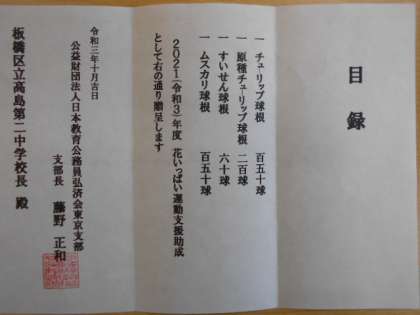 目録
一 チューリップ球根 百五十球
一 原種チューリップ球根 二百球
一 すいせん球根 六十球
一 ムスカリ球根 百五十球
2021(令和3)年度 花いっぱい運動支援助成
として右の通り贈呈します
令和三年十月吉日
公益財団法人日本教育公務員弘済会東京支部
支部長 藤野 正和
板橋区立高島第二中学校長 殿